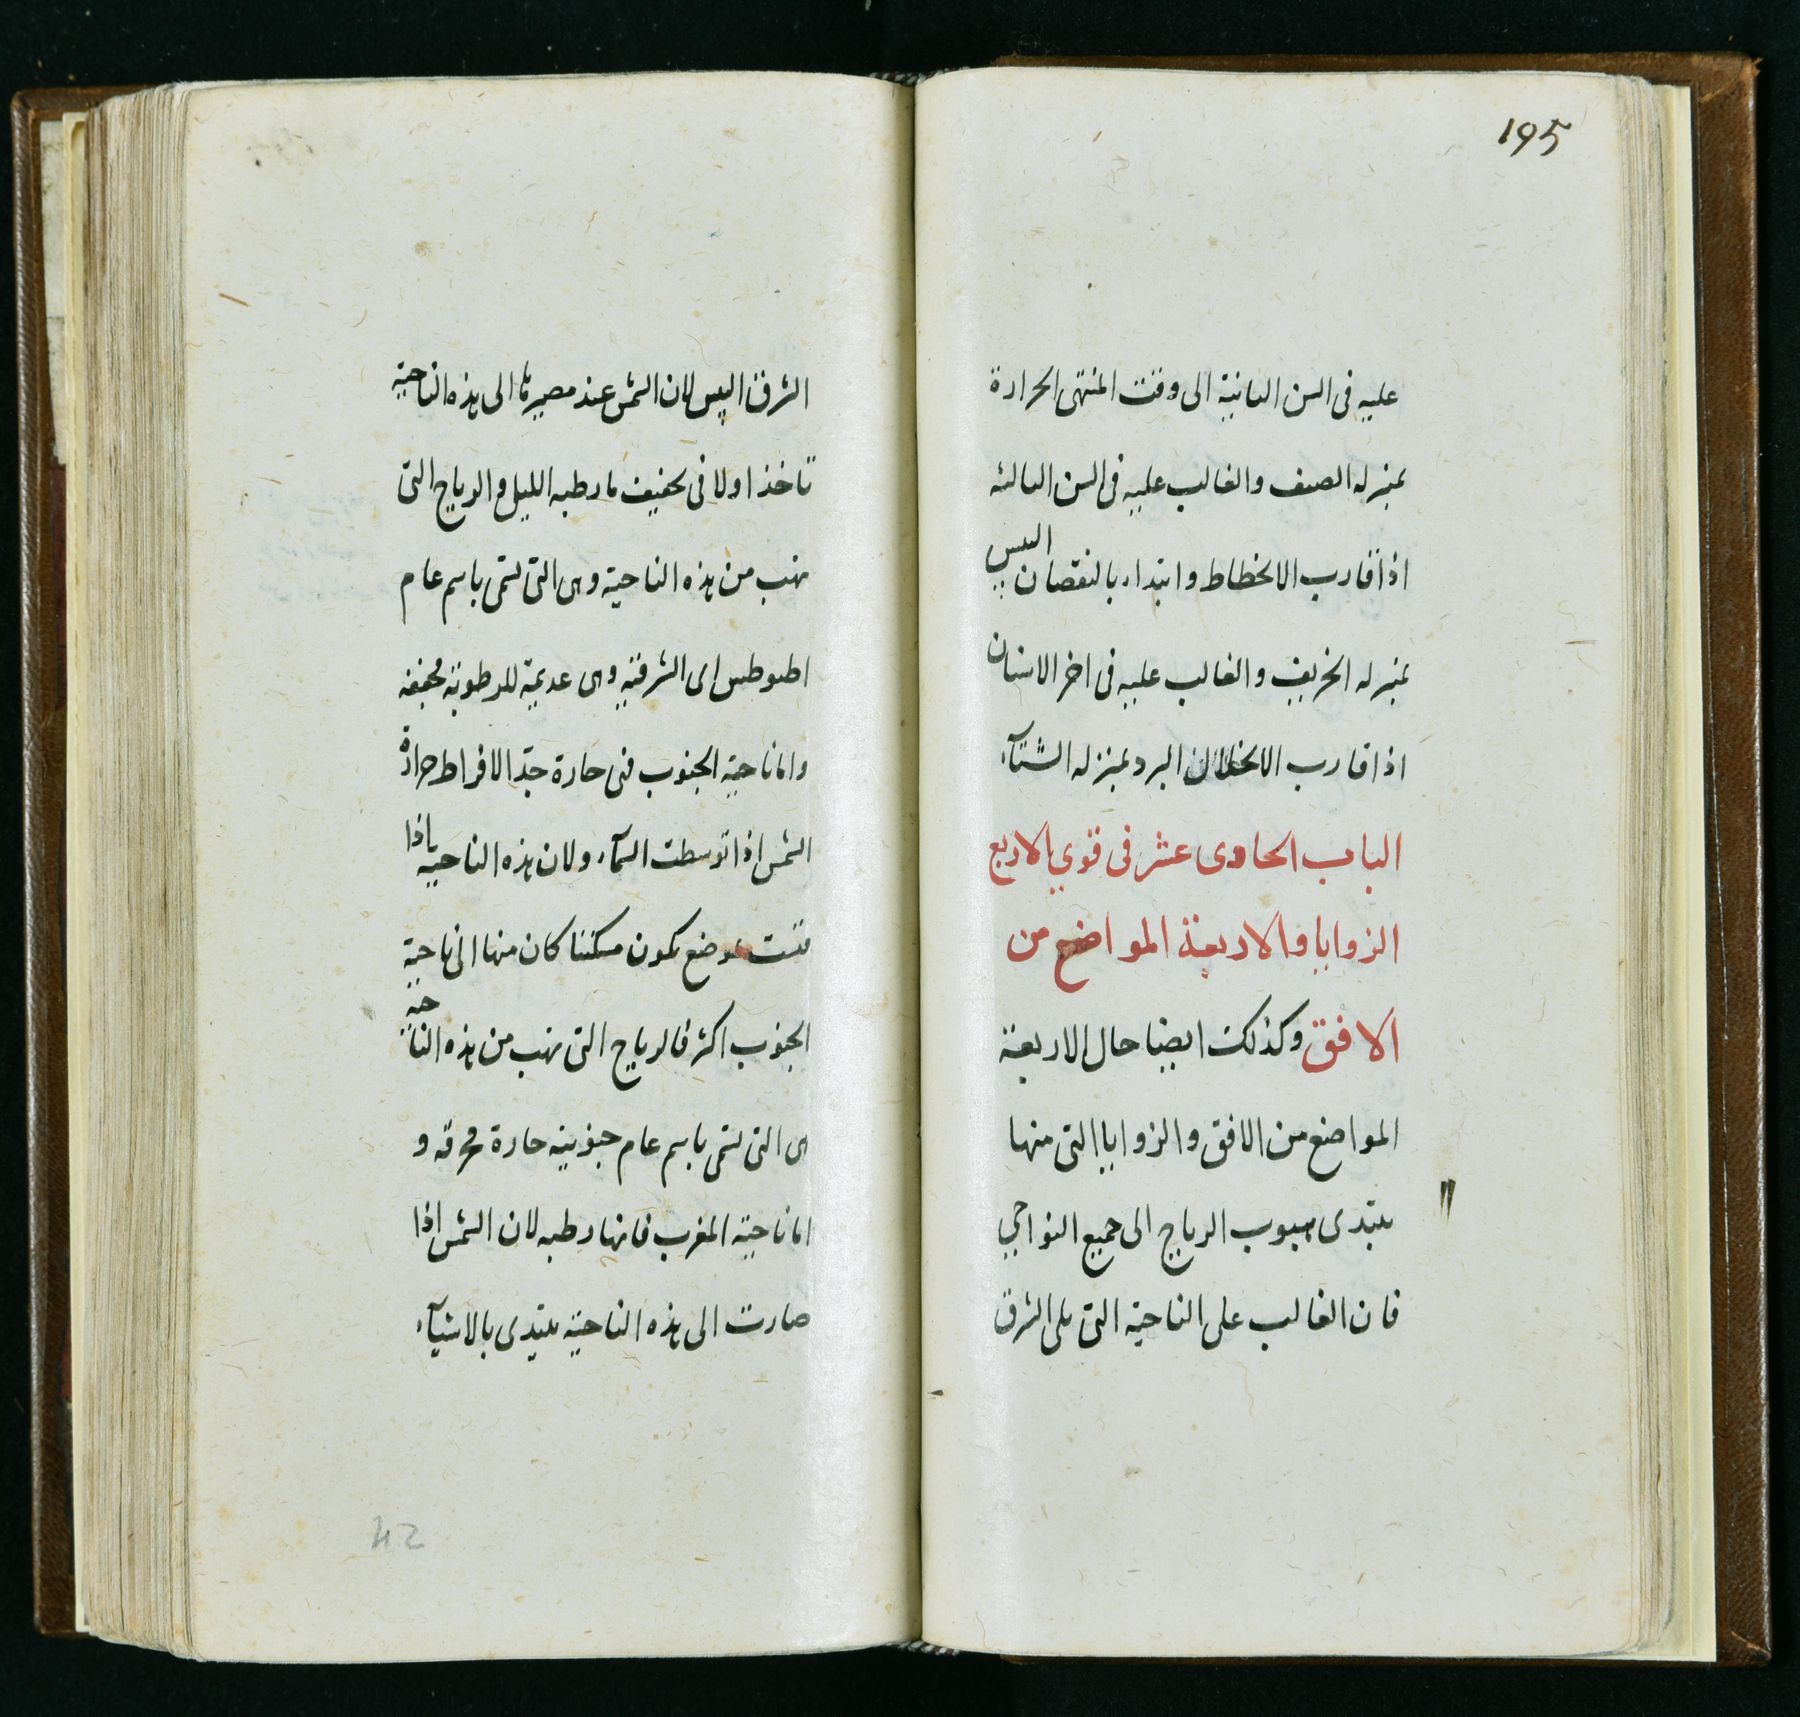 195
عليه فى السن الثانية الى وقت المنتهى الحرارة
بمنزله الصيف والغالب عليه فى السن الثالثه
اذا قارب الانحطاط وابتداء بالنقصان اليبس
بمنزله الخريف والغالب عليه فى اخر الاسنان
اذا قارب الانحلال البرد بمنزله الشتآء
الباب الحادى عشر فى قوي الاربع
الزوايا والاربعة المواضع من
الافق وكذلك ايضا حال الاربعة
المواضع من الافق والزوايا التى منها
يبتدى هبوب الرياح الى جميع النواحي
فان الغالب على الناحية التى يلى الشرق
الشرق اليبس لان الشمس عند مصيرها الى هذه الناحية
تاخذ اولا فى تجفيف ما رطبه الليل والرياح التى
تهب من هذه الناحية وهى التى تسمى باسم عام
اطىوطس اى الشرقية وهى عديمة للرطوبة مجففه
واما ناحية الجنوب فهى حارة جدّا لافراط حرارة
الشمس اذا توسطت السمآء ولان هذه الناحية اذا
قيست بموضع يكون مسكننا كان منها الى ناحية
الجنوب اكثر فالرياح التى تهب من هذه الناحية
هى التى تسمى باسم عام جنوبيه حارة محرقه و
اما ناحية المغرب فانها رطبه لان الشمس اذا
صارت الى هذه الناحية يبتدى بالاشيآء
42